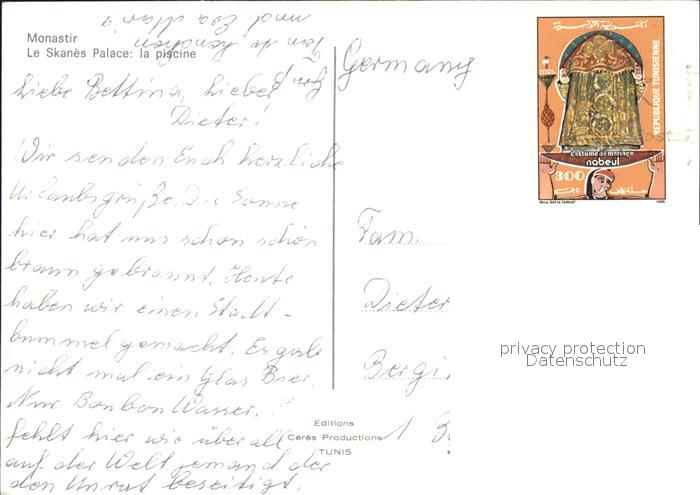 Monastir
Le Skanès Palace: la piscine
Liebe Bettina, lieber
Dieter!
Wir senden Euch herzliche
Urlaubsgrüße. Die Sonne
hier hat uns schon schön
braun gebrannt. Heute
haben wir einen Stadt-
bummel gemacht. Es gab
nicht mal ein Glas Bier.
Nur BonbonWasser.
fehlt hier wie überall
auf der Welt jemand der
den Unrat beseitigt.
und Eva Maria
Editions
Cérès Productions
TUNIS
Germany
Fam.
Dieter
Bergi
1 B
REPUBLIQUE TUNISIENNE
costume de mariage
nabeul
300
Mme. SAFIA FARHAT
privacy protection
Datenschutz